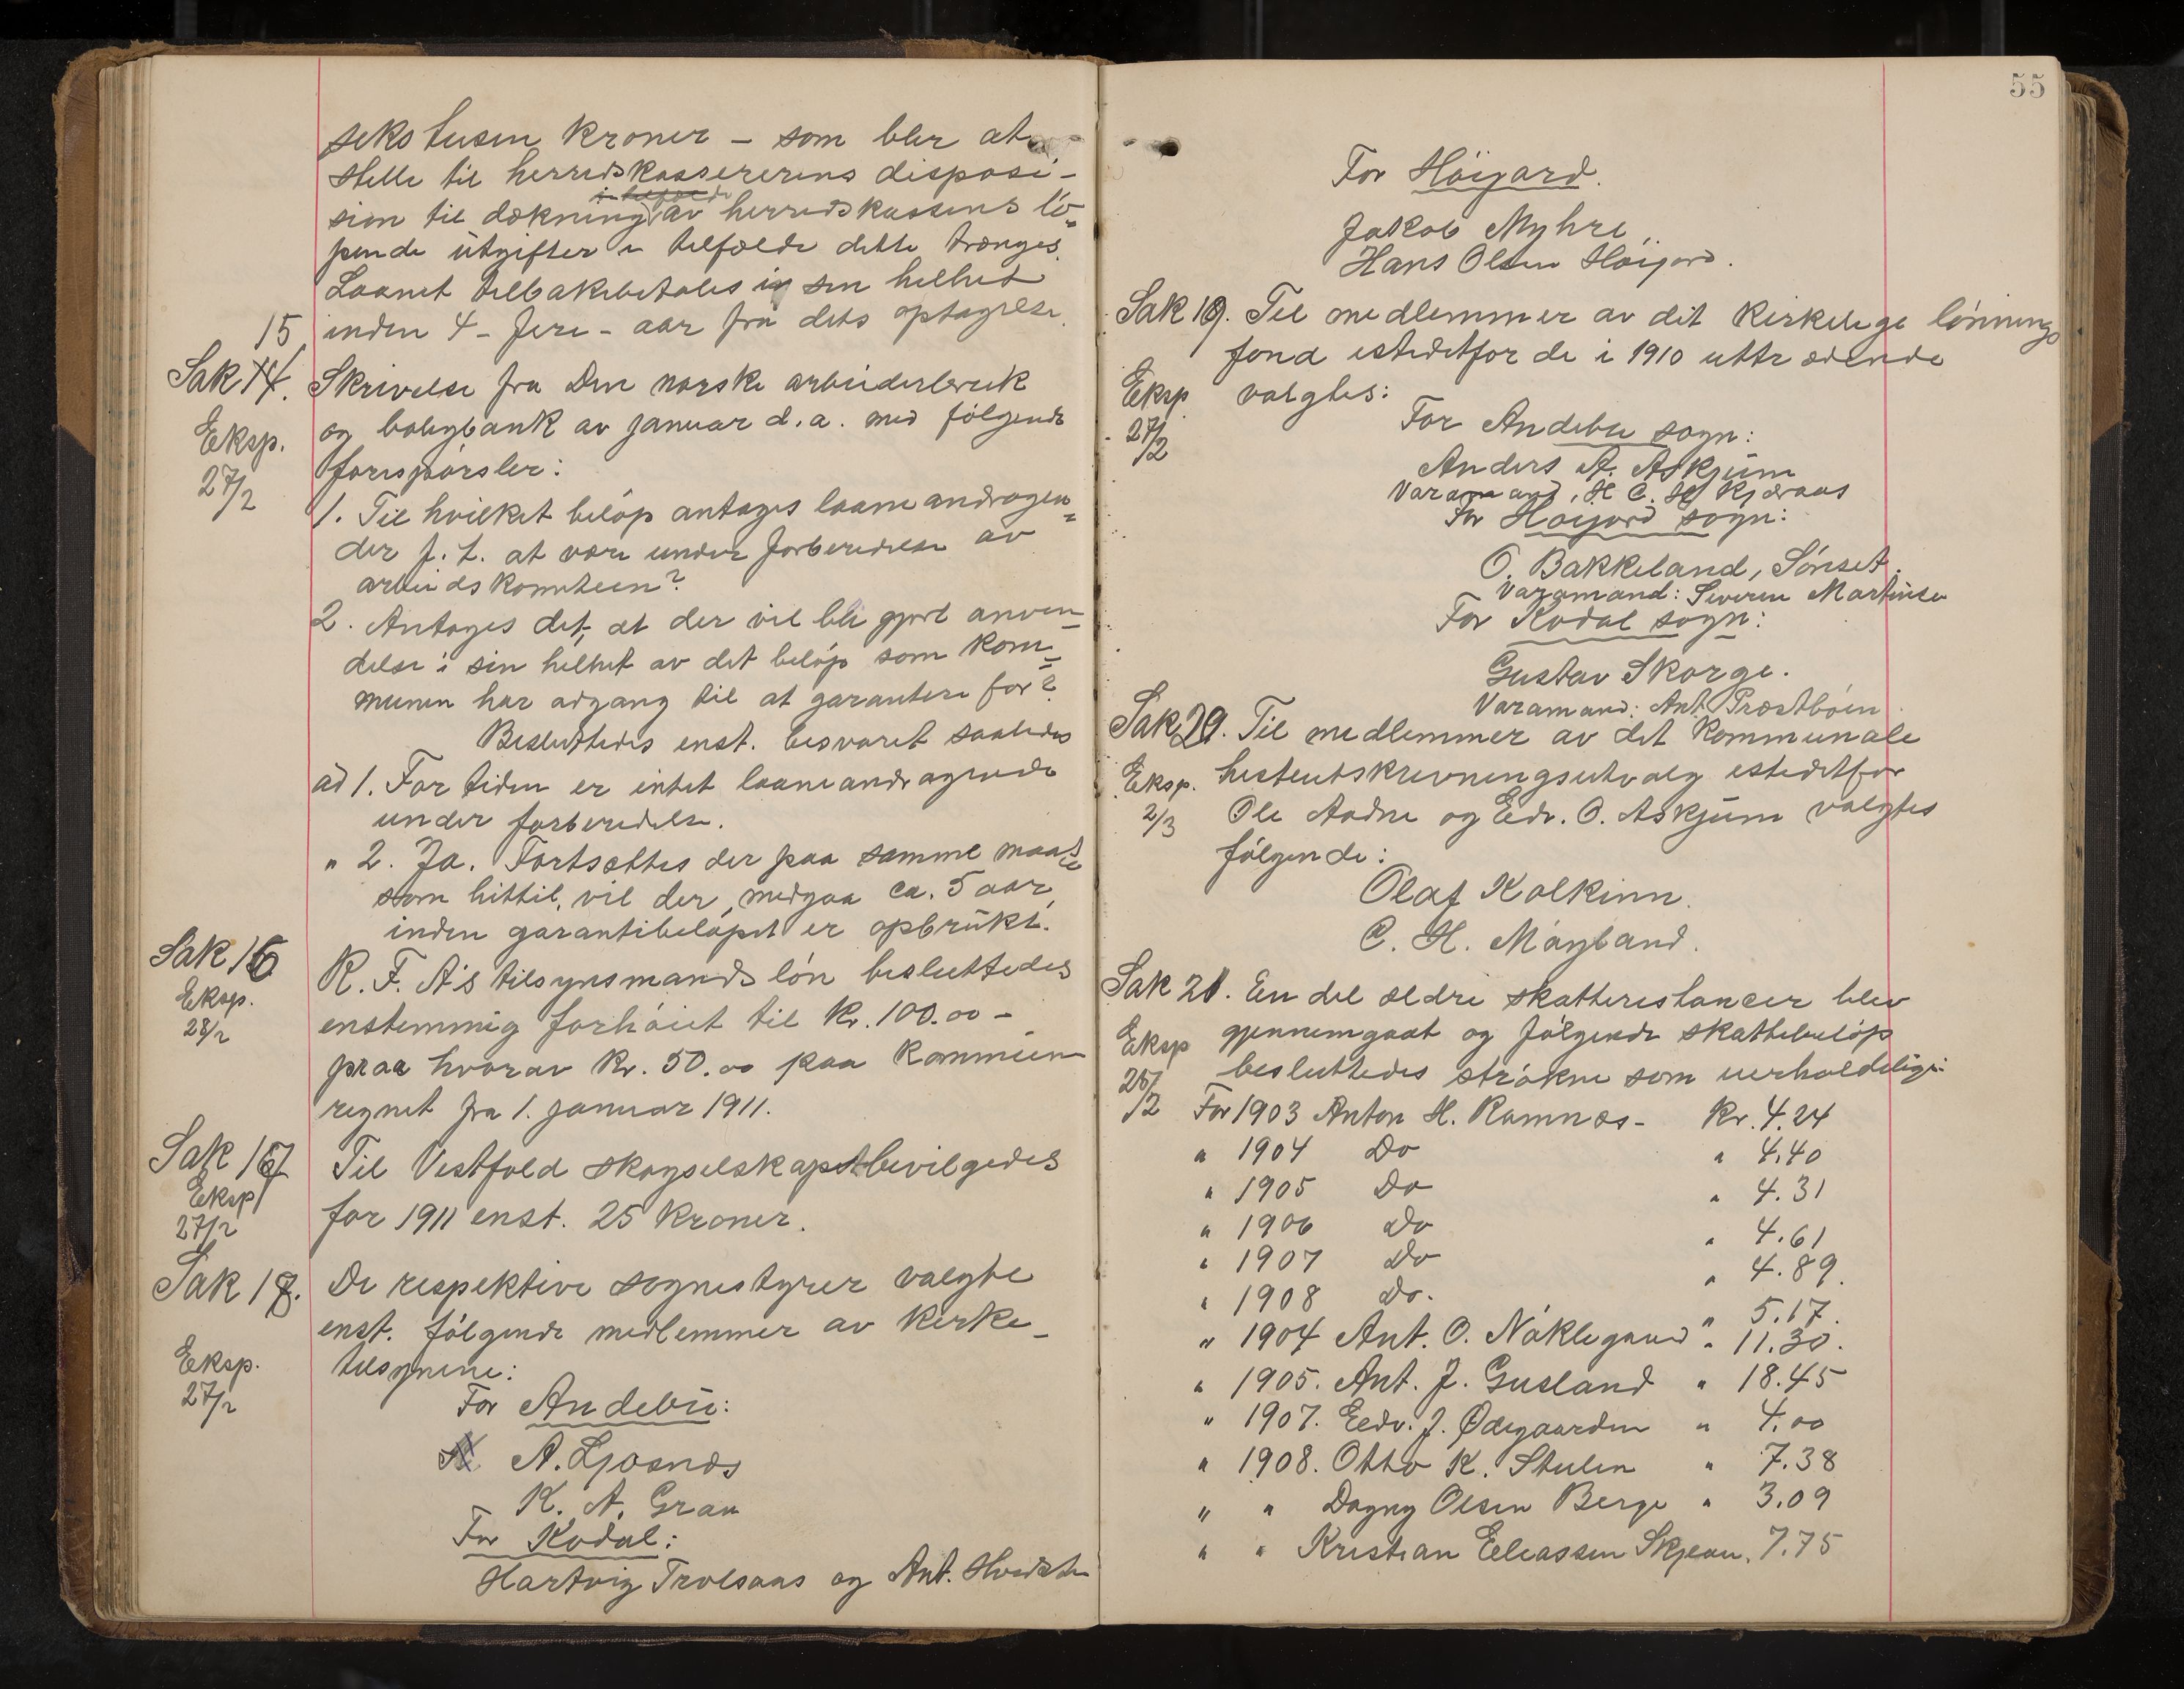 seks tusen kroner – som blir at
stille til herredskassererens disposi-
sion til dækning av herredskassens lö-
pende utgifter i tilfælde dette trænges.
Laanet tilbakebetales i sin helhet
inden 4 - fire - aar fra dets optagelse.
15
Sak 14. Skrivelse fra Den norske arbeiderbruk
Eksp. og boligbank av januar d.a. med følgende
27/2 forespørsler:
1. Til hvilket beløp antages laaneandragen-
der f. t. at være under forberedelse av
arbeidskomiteen?
2. Antages det, at der vil bli gjort anven-
delse i sin helhet av det beløp som kom-
munen har adgang til at garantere for?
Besluttedes enst. besvaret saaledes
ad 1. For tiden er intet laaneandragende
under forberedelse.
" 2. Ja. Fortsættes der paa samme maate
som hittil, vil der medgaa ca. 5 aar,
inden garantibeløpet er opbrukt.
Sak 16 K. F. A's tilsynsmands løn besluttedes
Eksp. enstemmig forhøiet til kr. 100.00 –
28/2 hvorav kr. 50.00 paa kommunen
regnet fra 1. januar 1911.
Sak 17 Til Vestfold skogselskap bevilgedes
Eksp for 1911 enst. 25 kroner.
27/2
Sak 18. De respektive sognestyrer valgte
enst. følgende medlemmer av kirke-
Eksp. tilsynene:
27/2
For Andebu:
A. Ljosnæs
K. A. Gran
For Kodal:
Hartvig Trolsaas og Ant. Hvidsten
55
For Höijord.
Jakob Myhre
Hans Olsen Höijord.
Sak 19. Til medlemmer av det kirkelige lønnings
fond istedetfor de i 1910 uttrædende
Eksp valgtes:
27/2
For Andebu sogn:
Anders A. Askjum
Varamand, H. C. Kjæraas
For Höijord sogn:
O. Bakkeland, Sönset.
Varamand: Severin Martinsen
For Kodal sogn:
Gustav Skorge.
Varamand: Ant. Præstbøen
Sak 20. Til medlemmer av det kommunale
Eksp. hesteutskrivningsutvalg istedetfor
2/3 Ole Aadne og Edv. O. Askjum valgtes
følgende:
Olaf Kolkinn.
C. H. Møyland.
Sak 21. En del ældre skatterestancer blev
Eksp gjennemgaat og følgende skattebeløp
28/2 besluttedes strøkne som uerholdelige:
For 1903 Anton H. Ramnæs - Kr. 4.24
" 1904 Do " 4.40
" 1905 Do " 4.31
" 1906 Do " 4.61
" 1907 Do " 4.89.
" 1908 Do. " 5.17.
" 1904 Ant. O. Nøklegaard " 11.30.
" 1905. Ant. J. Gusland " 18.45
" 1907. Edv. J. Ødegaarden " 4.00
" 1908. Otto K. Stulen " 7.38
" " Dagny Olsen Berge " 3.09
" " Kristian Eliassen Skjeau. 7.75